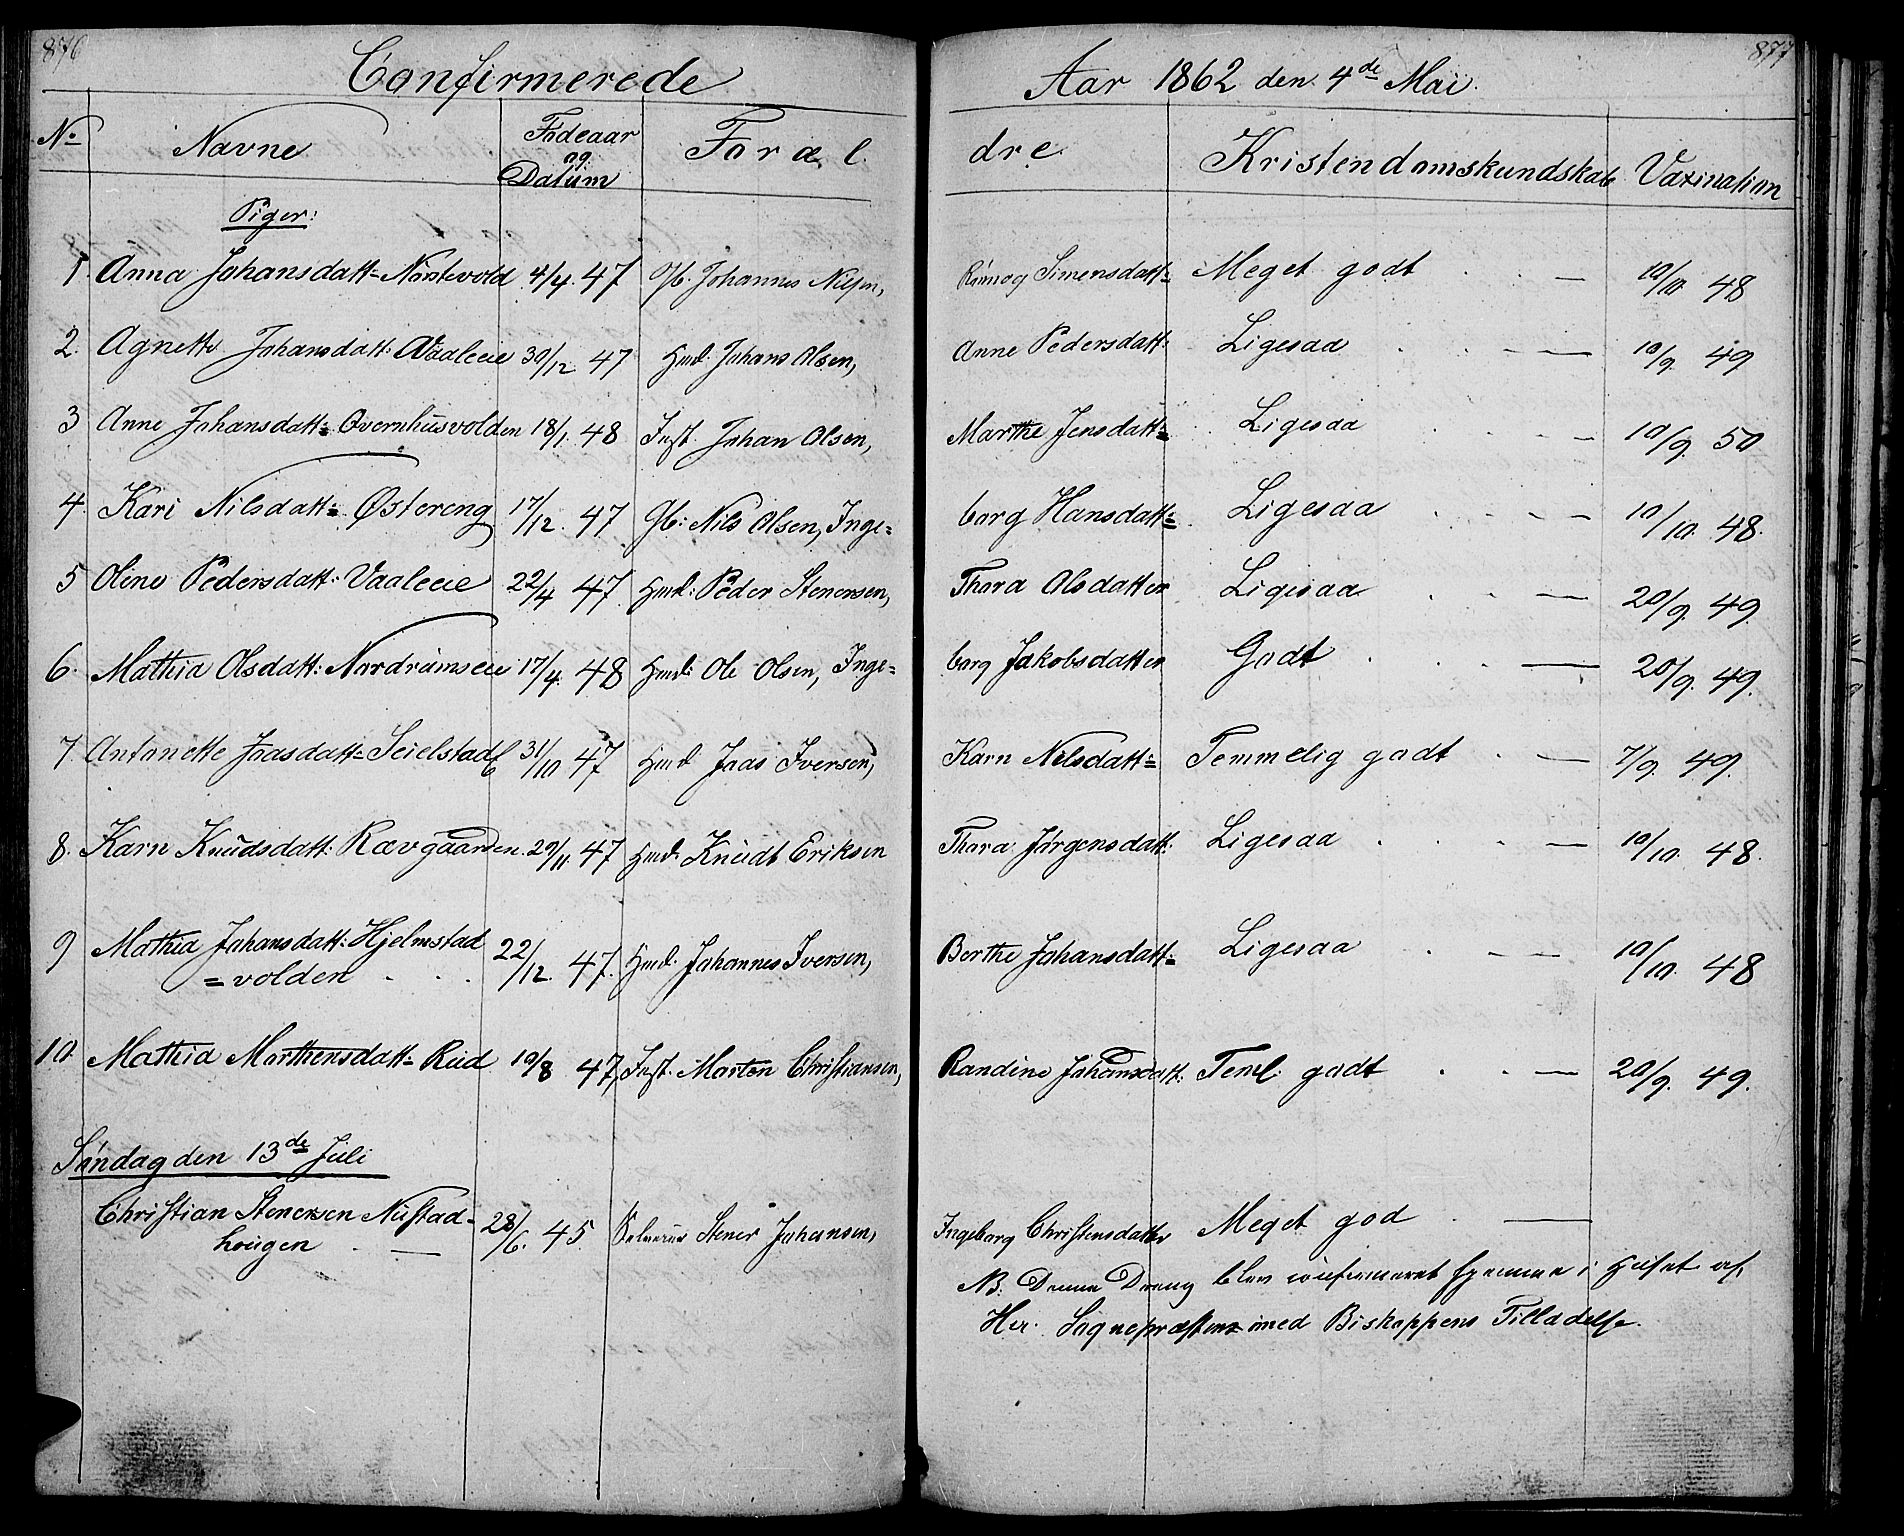 876
877
Confirmerede Aar 1862 den 4de Mai.
No Navne Fødeaar og Datum Foræl dre Kristendomskundskab Vaxination
Piger:
1. Anna Johansdatt= 4/4. 47 Gb. Johannes Nilsen, Simensdatt= Meget godt . . — 10/10. 48
2. Agnette Johansdatt: Vaaleeie 30/12 47 Hmd: Johans Olsen, Anne Pedersdatt: Ligesaa . . — 10/9. 49
3 Anne Johansdatt= Qvernhusvolden 18/1. 48 Inst. Johan Olsen, Marthe Jensdatt= Ligesaa . - — 10/9. 50
4. Kari Nilsdatt= Østereng 17/12. 47 Gb: Nils Olsen, Inge= borg Hansdatt= Ligesaa . - — 10/10. 48.
5 Oline Pedersdatt: Vaaleeie 22/4 47. Hmd: Peder Stenersen, Thora Olsdatter Ligesaa . - — 20/9. 49
6. Mathia Olsdatt: Nordrumseie 17/4. 48 Hmd: Ole Olsen, Inge= borg Jakobsdatter Godt . . — 20/9. 49.
7. Antonette Joasdatt= Seielstad 31/10 47 Hmd Joas Iversen, Karn Nilsdatt= Temmelig godt . — 7/9. 49.
8. Karn Knudsdatt: Rævgaarden. 29/11. 47 Hmd: Knudt Eriksen Thora Jørgensdatt: Ligesaa . . — 10/10. 48.
9 Mathia Johansdatt: Hjelmstad
=volden . . . 22/12. 47. Hmd. Johannes Iversen, Berthe Johansdatt= Ligesaa . - — 10/10. 48
10. Mathia Marthensdatt= Rud 19/8 47, Inst. Morten Christiansen, Randine Johansdatt: Teml. godt . - — 20/9. 49.
Søndag den 13de Juli
Christian Stenersen Nustad-
hougen . — 28/6. 45 Selveier Stener Johansen, Ingeborg Christensdatter Meget god . —
NB. Denne Dreng blev confirmeret hjemme i Huset af
Hr. Sognepræsten med Biskoppens Tilladelse.